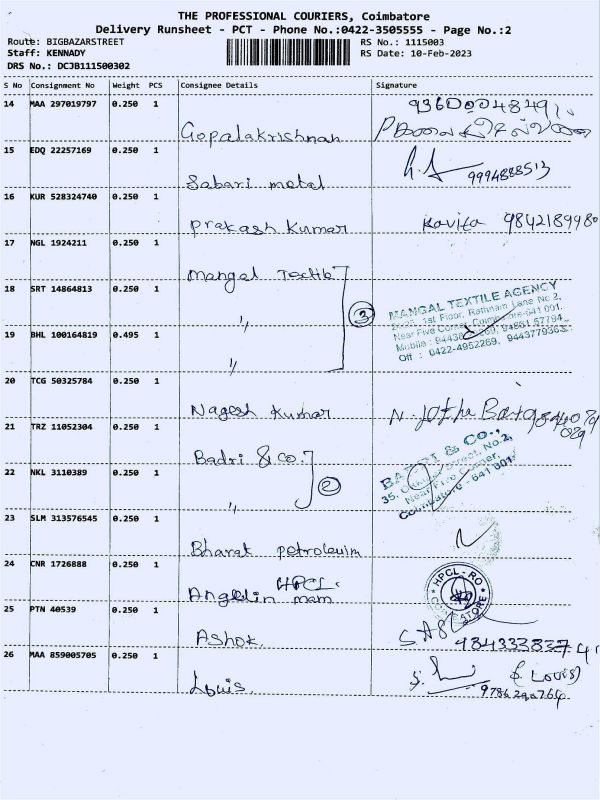 THE PROFESSIONAL COURIERS, Coimbatore
Delivery Runsheet - PCT - Phone No.:0422-3505555 - Page No.:2
Route: BIGBAZARSTREET
RS No.: 1115003
Staff: KENNADY
RS Date: 10-Feb-2023
DRS No.: DCJB111500302
S No Consignment No Weight PCS Consignee Details Signature
14 MAA 297019797 0.250 1 Gopalakrishnan
15 EDQ 22257169 0.250 1 Sabari metal 9994888513
16 KUR 528324740 0.250 1 Prakash Kumar Kavita 9842189980
17 NGL 1924211 0.250 1 Mangal Textile
18 SRT 14864813 0.250 1 〃
19 BHL 100164819 0.495 1 〃
3
MANGAL TEXTILE AGENCY
1st Floor, Rathnam Lane No 2,
Near Five Corner,
Mobile :
Off : 0422-4952269,
20 TCG 50325784 0.250 1 Nagesh Kumar
21 TRZ 11052304 0.250 1 Badri & Co.
22 NKL 3110389 0.250 1 〃
2
BADRI & CO.,
Near Five Corner,
Coimbatore - 641 001
23 SLM 313576545 0.250 1 Bharat petroleum
24 CNR 1726888 0.250 1 HPCL. Angelin mam
HPCL - RO
COIMBATORE
25 PTN 40539 0.250 1 Ashok.
26 MAA 859005705 0.250 1 Louis. (S. Louis)